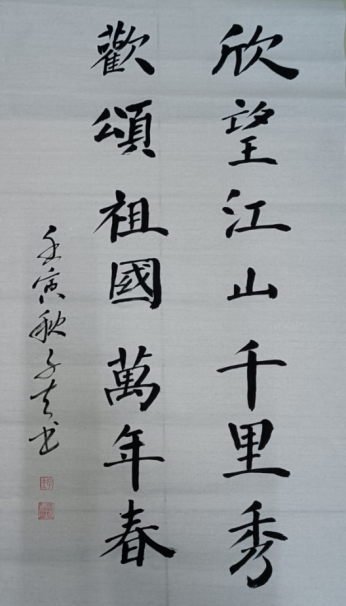 欣望江山千里秀
歡頌祖國萬年春
壬寅秋子夫书